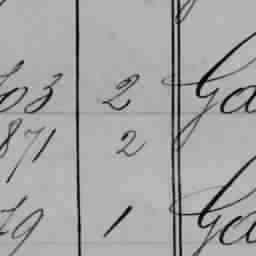 703 2 Ga
871 2
79 1 Ga